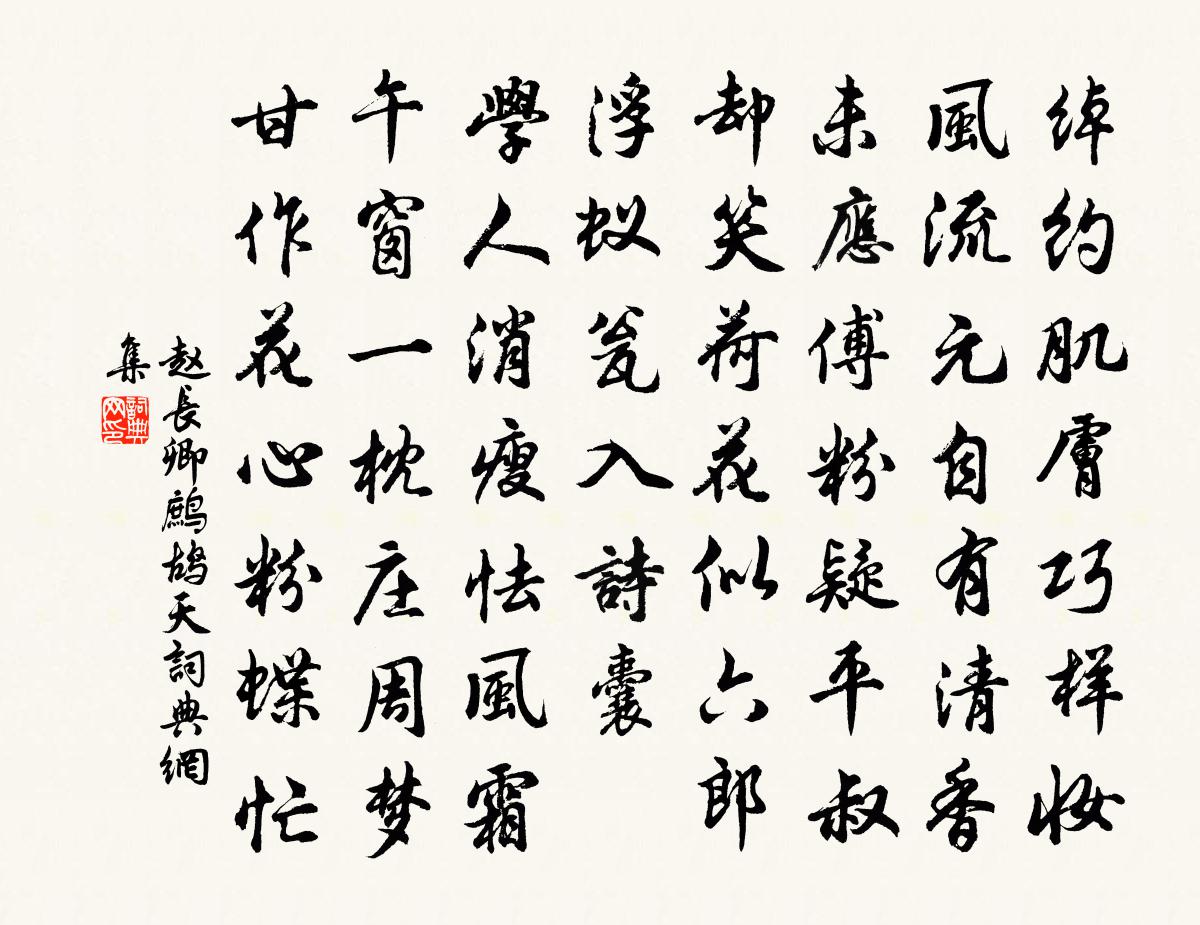 綽约肌膚巧样妆
風流元自有清香
未應傅粉疑平叔
却笑荷花似六郎
浮蚁瓮入詩囊
學人消瘦怯風霜
午窗一枕庄周梦
甘作花心粉蝶忙
赵長卿鷓鴣天詞典網
集
詞典網印